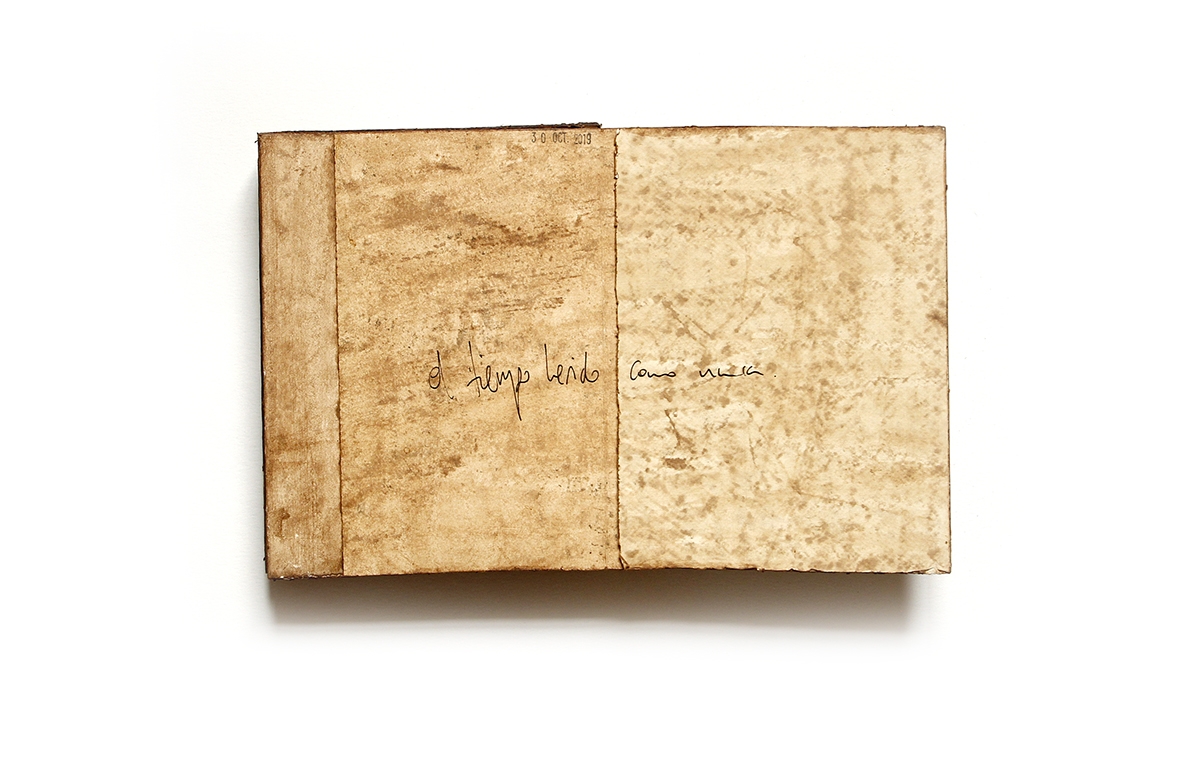 30 OCT. 2019
el tiempo como nunca.